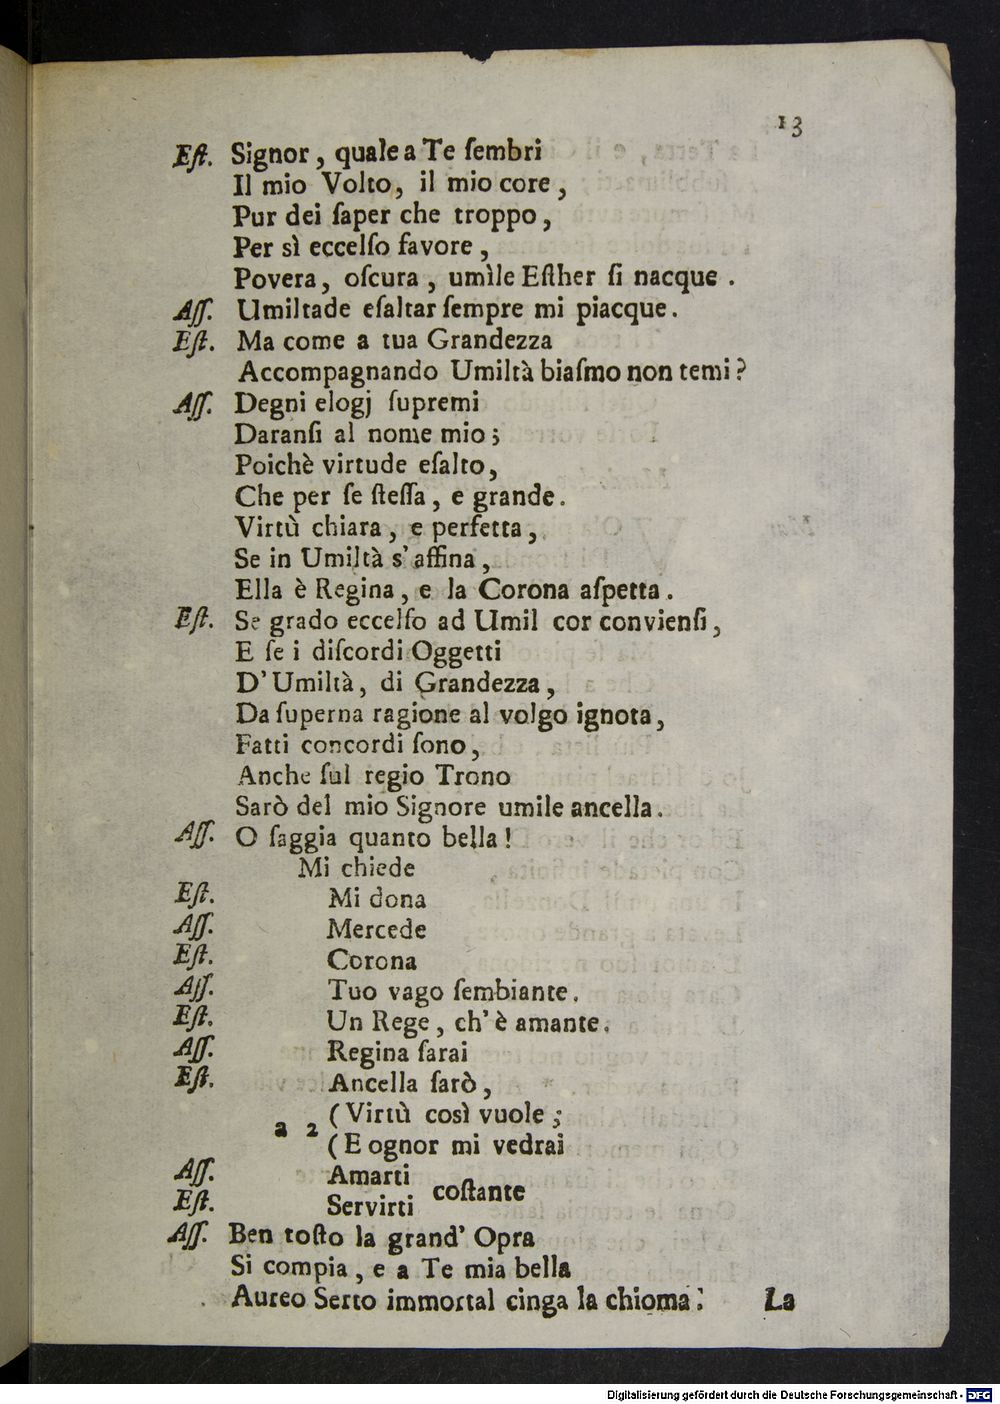 13
Eſt. Signor, quale a Te ſembri
Il mio Volto, il mio core,
Pur dei ſaper che troppo,
Per sì eccelſo favore,
Povera, oſcura, umìle Eſther ſi nacque.
Aſſ. Umiltade eſaltar ſempre mi piacque.
Eſt. Ma come a tua Grandezza
Accompagnando Umiltà biaſmo non temi?
Aſſ. Degni elogj ſupremi
Daranſi al nome mio;
Poichè virtude eſalto,
Che per ſe ſteſſa, e grande.
Virtù chiara, e perfetta,
Se in Umiltà s' affina,
Ella è Regina, e la Corona aſpetta.
Eſt. Se grado eccelſo ad Umil cor convienſi,
E ſe i diſcordi Oggetti
D' Umiltà, di Grandezza,
Da ſuperna ragione al volgo ignota,
Fatti concordi ſono,
Anche ſul regio Trono
Sarò del mio Signore umile ancella.
Aſſ. O ſaggia quanto bella!
Mi chiede
Eſt. Mi dona
Aſſ. Mercede
Eſt. Corona
Aſſ. Tuo vago ſembiante.
Eſt. Un Rege, ch' è amante.
Aſſ. Regina ſarai
Eſt. Ancella ſarò,
a 2 (Virtù così vuole;
(E ognor mi vedrai
Aſſ. Amarti
Eſt. Servirti coſtante
Aſſ. Ben toſto la grand' Opra
Si compia, e a Te mia bella
Aureo Serto immortal cinga la chioma. La
Digitalisierung gefördert durch die Deutsche Forschungsgemeinschaft - DFG